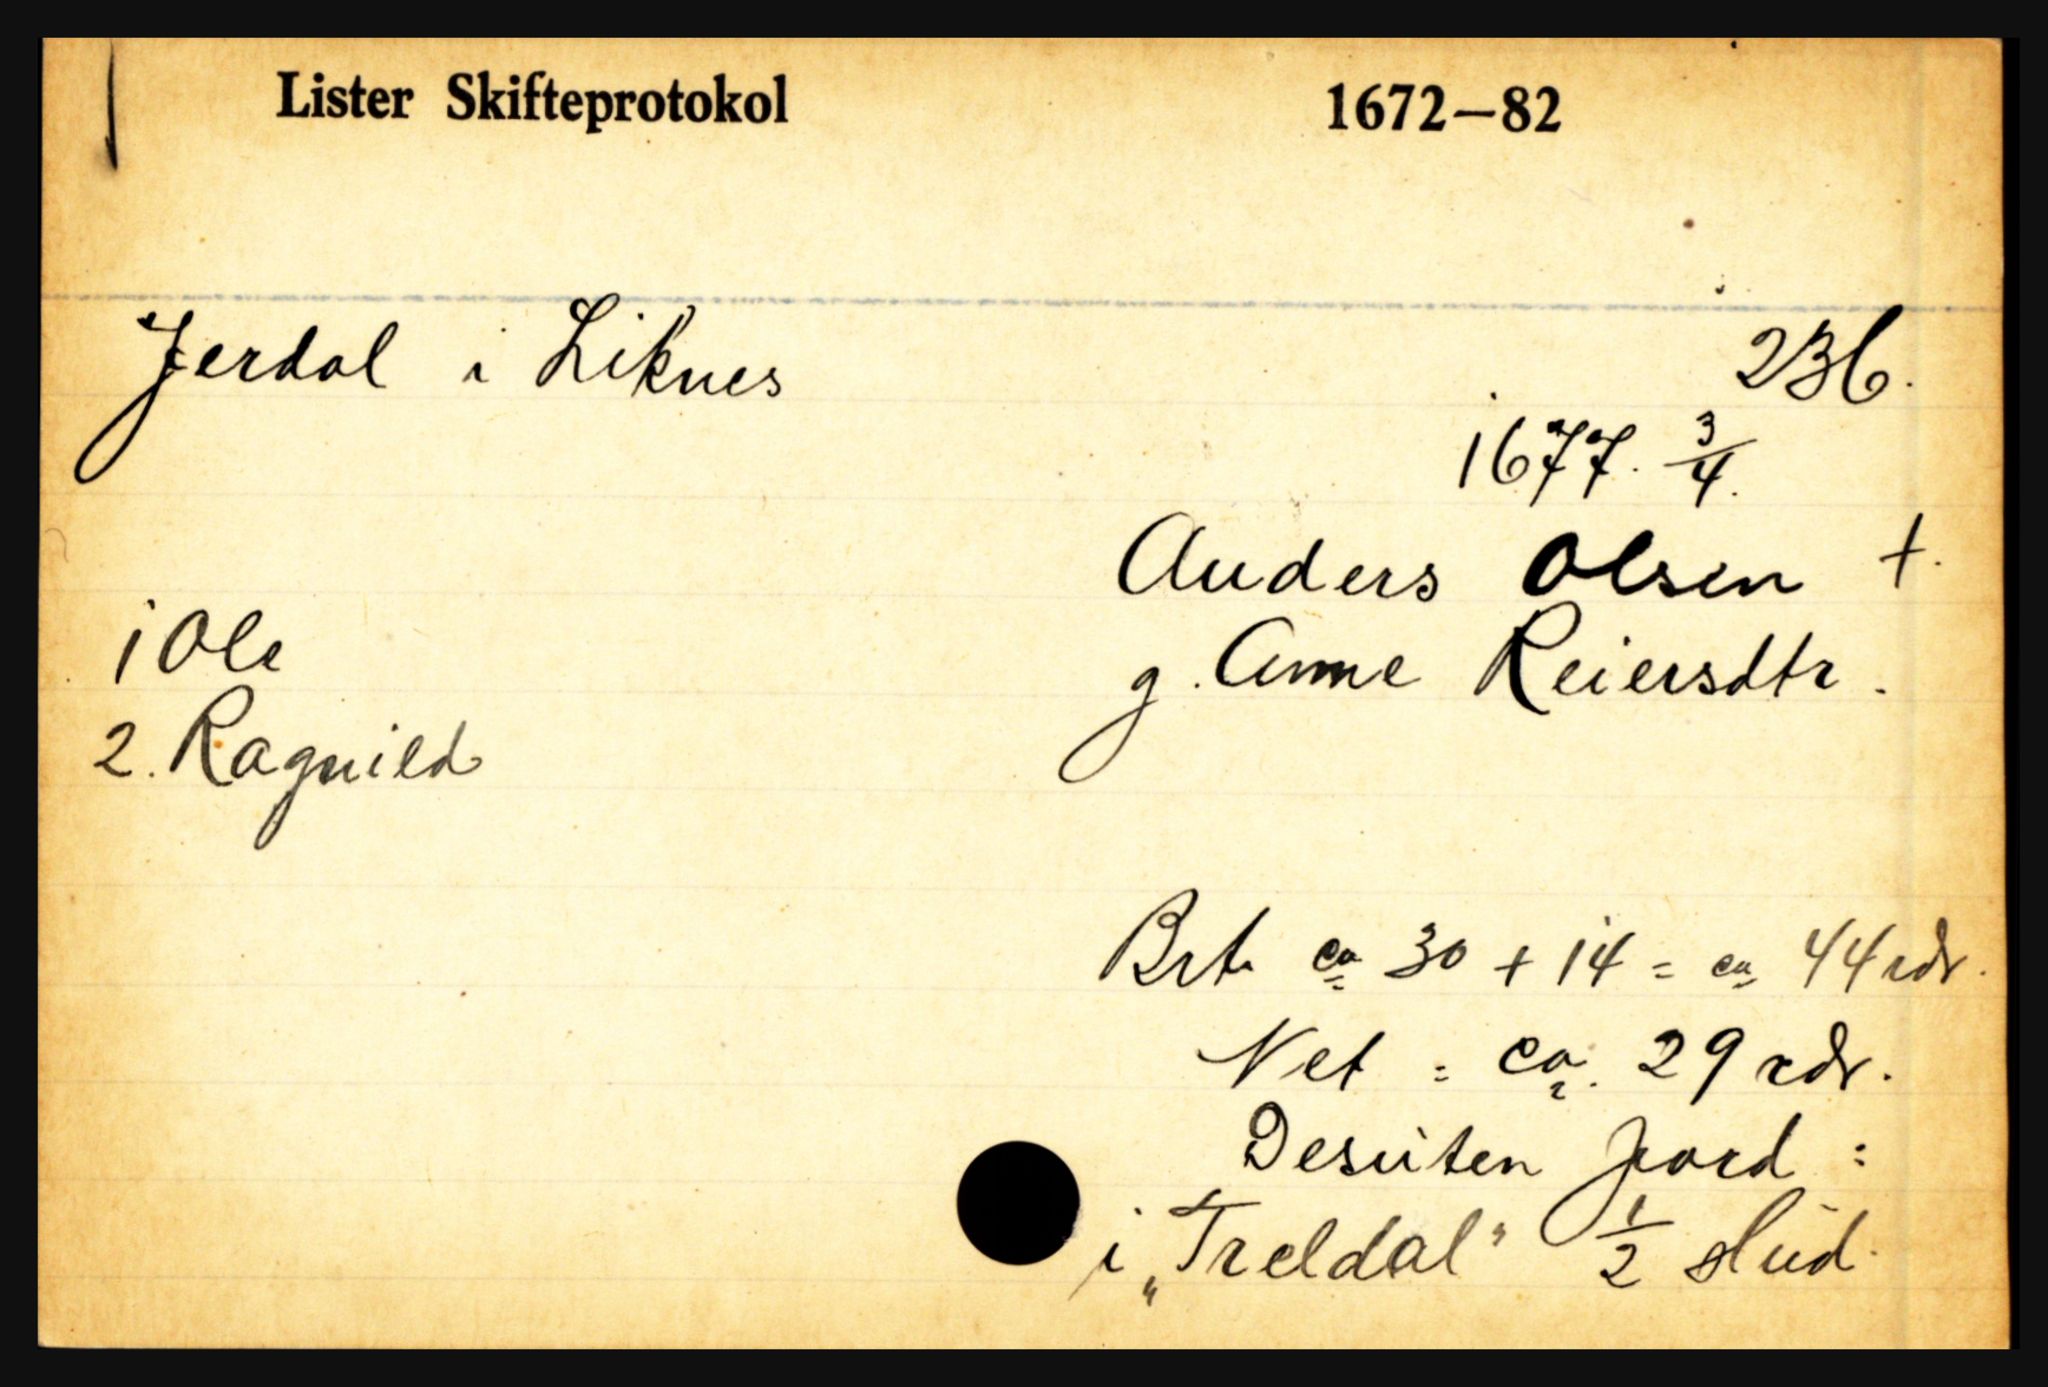 Lister Skifteprotokol 1672–82
Jerdal i Liknes 236.
1677. 3/4.
Anders Olsen †.
1 Ole g. Anne Reiersdtr.
2. Ragnild
Brt. ca 30 + 14 = ca 44 rdr.
Net = ca. 29 rdr.
Desuten jord :
i „Treldal" 1/2 hud.